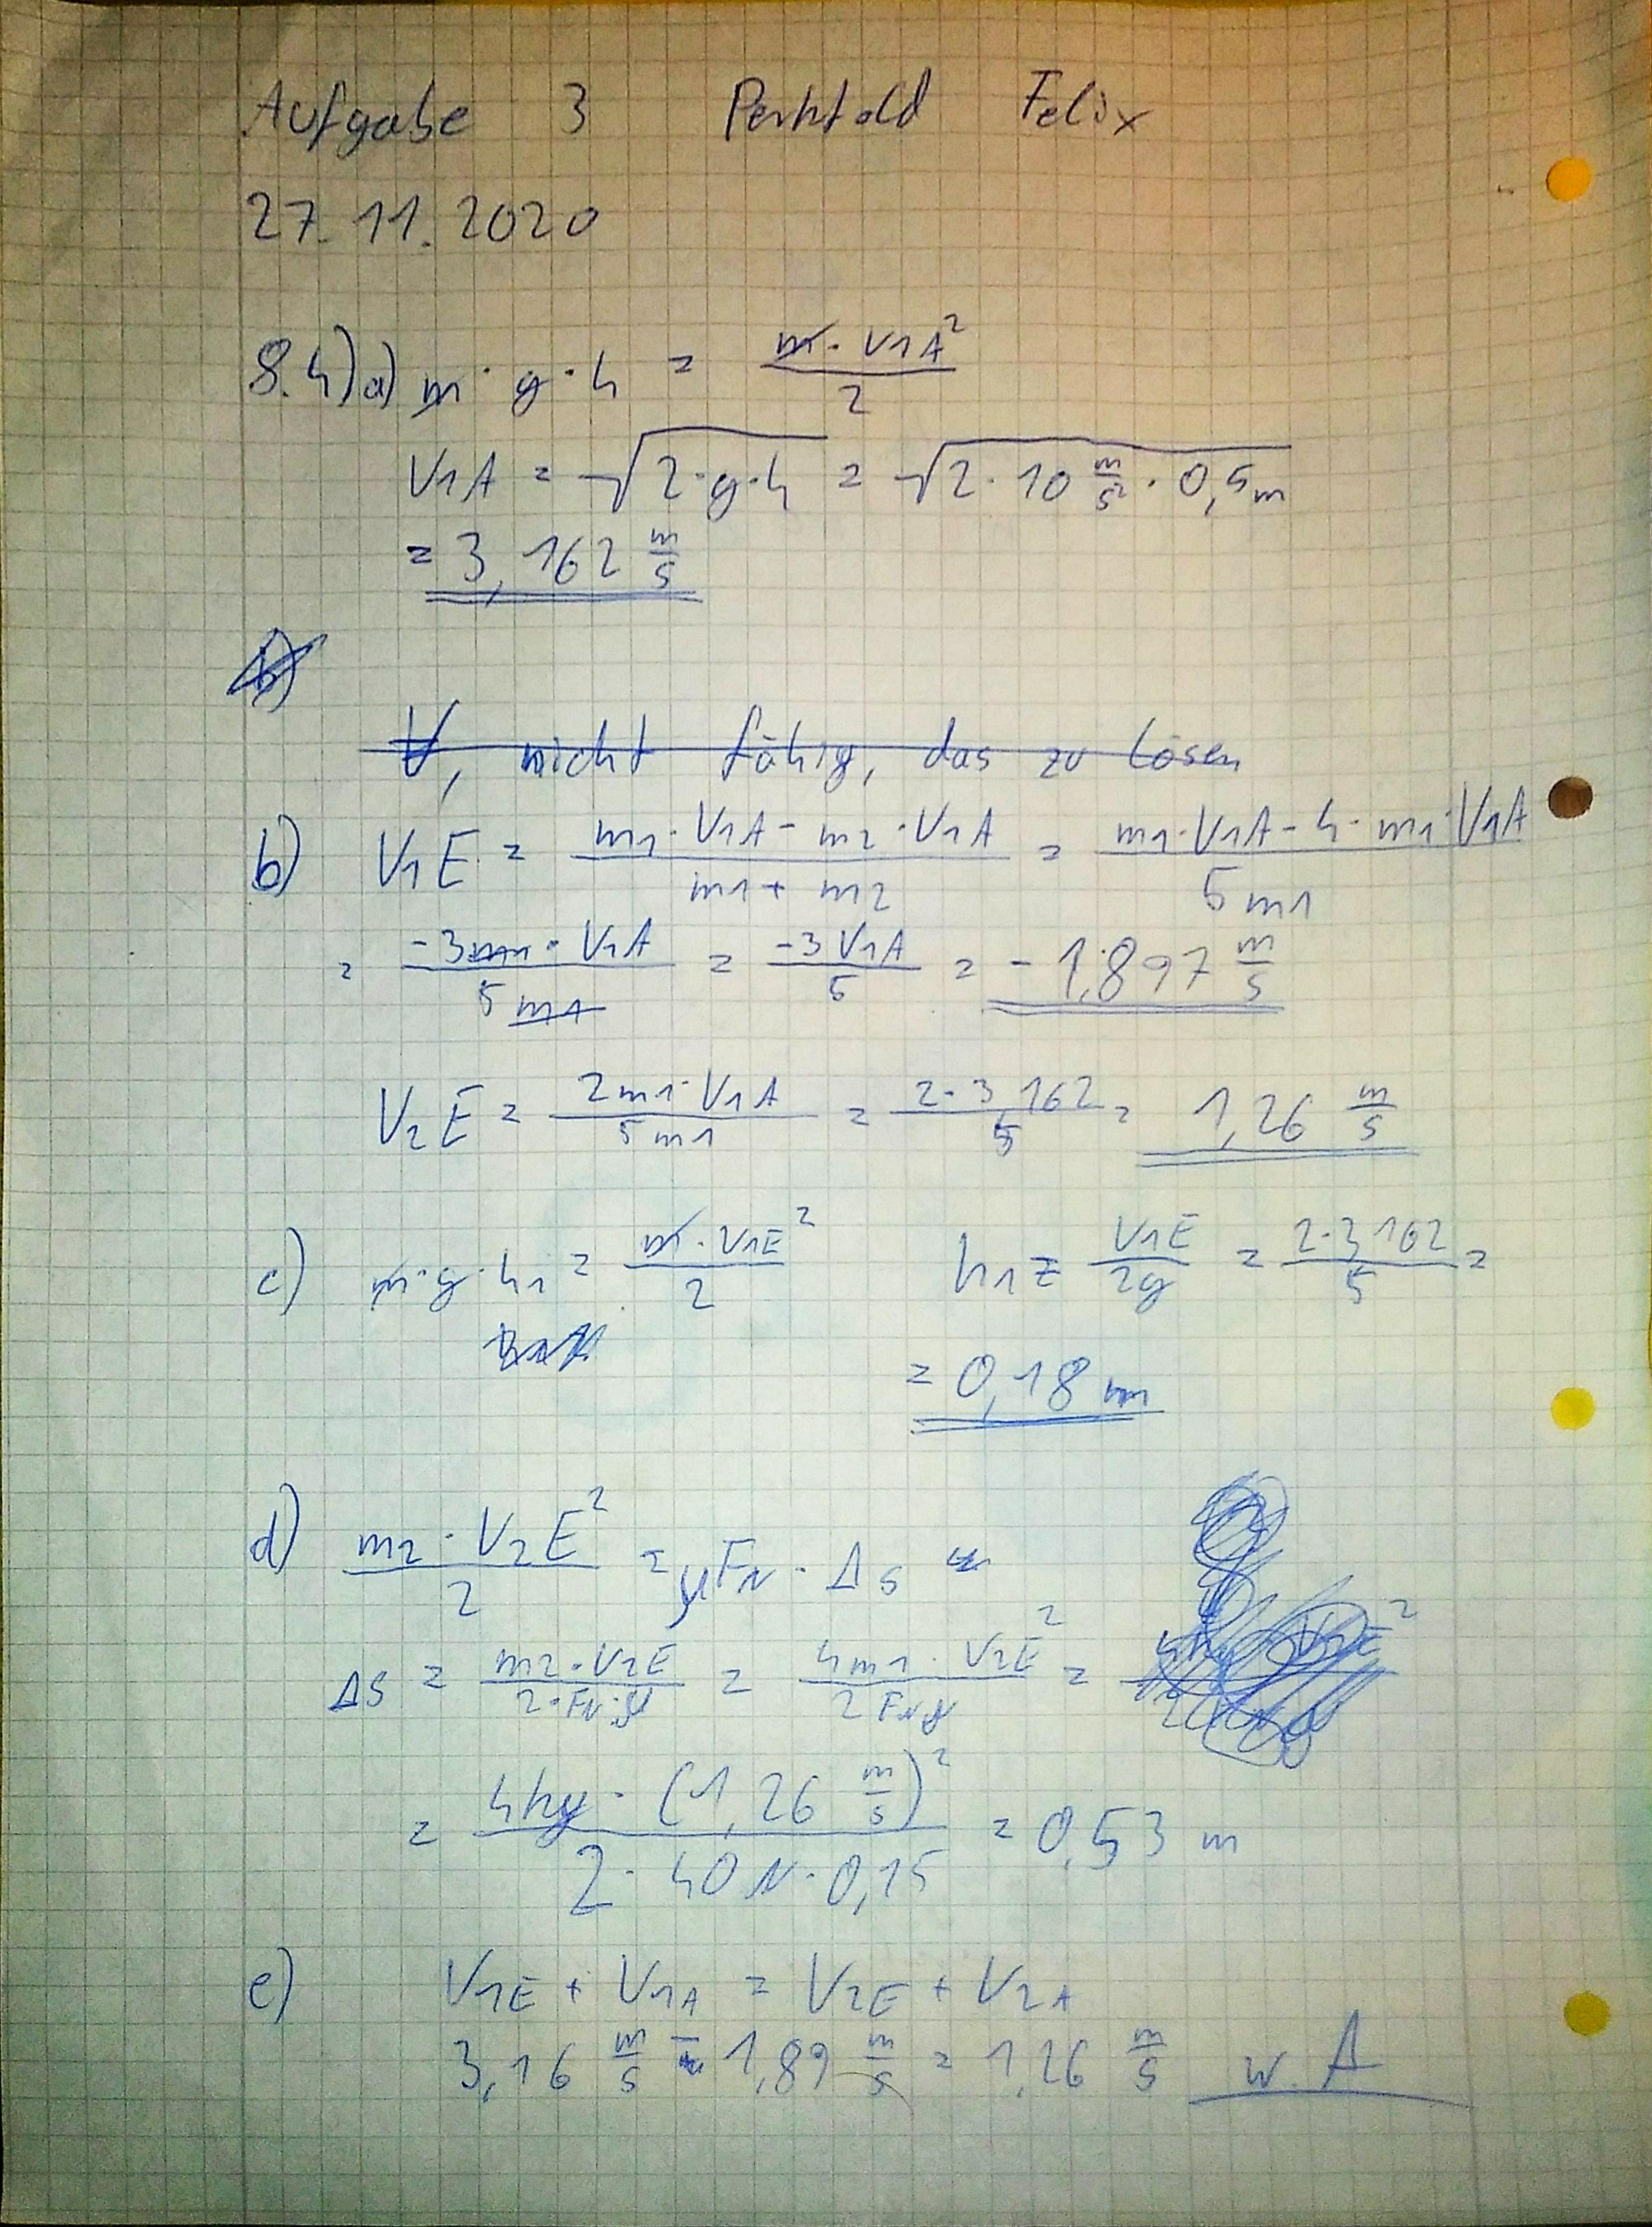 Aufgabe 3 Perktold Felix
27.11.2020
8.4)a) m · g · h = m · V1A² / 2
V1A = √2·g·h = √2·10 m/s² · 0,5m
= 3,162 m/s
b)
V, nicht fähig, das zu lösen
b) V1E = m1·V1A - m2·V1A / m1 + m2 = m1·V1A - 4·m1·V1A / 5m1
= -3m1·V1A / 5m1 = -3V1A / 5 = -1,897 m/s
V2E = 2m1·V1A / 5m1 = 2·3,162 / 5 = 1,26 m/s
c) m·g·h1 = m·V1E² / 2 h1 = V1E / 2g = 2·3,162 / 5 =
= 0,18 m
d) m2·V2E² / 2 = μFN·Δs
Δs = m2·V2E / 2·FN·μ = 4m1·V2E² / 2FNμ =
= 4kg·(1,26 m/s)² / 2·40N·0,15 = 0,53 m
e) V1E + V1A = V2E + V2A
3,16 m/s - 1,89 m/s = 1,26 m/s w. A